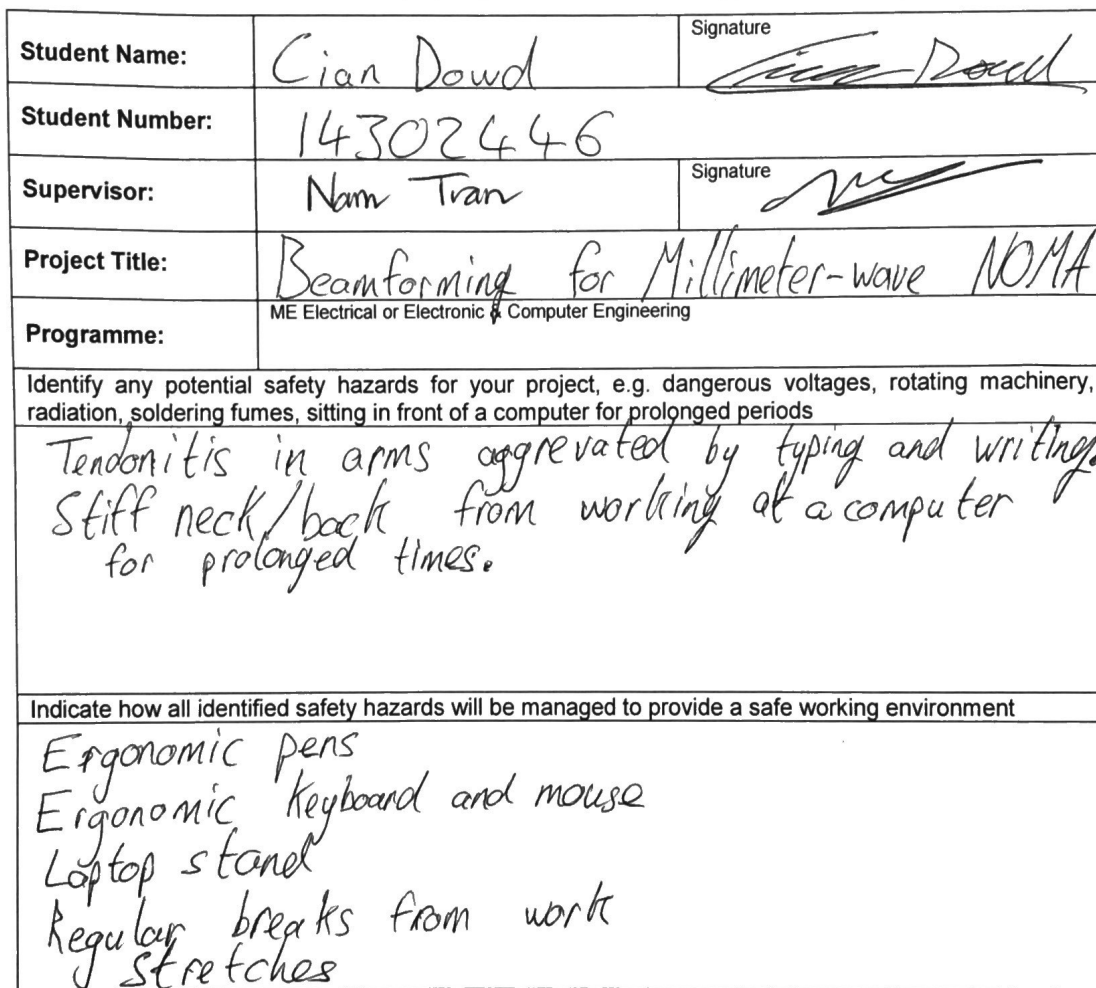 Student Name: Cian Dowd Signature Cian Dowd
Student Number: 14302446
Supervisor: Nam Tran Signature
Project Title: Beamforming for Millimeter-wave NOMA
Programme: ME Electrical or Electronic & Computer Engineering
Identify any potential safety hazards for your project, e.g. dangerous voltages, rotating machinery,
radiation, soldering fumes, sitting in front of a computer for prolonged periods
Tendonitis in arms aggrevated by typing and writing.
Stiff neck/back from working at a computer
for prolonged times.
Indicate how all identified safety hazards will be managed to provide a safe working environment
Ergonomic pens
Ergonomic keyboard and mouse
Laptop stand
Regular breaks from work
stretches